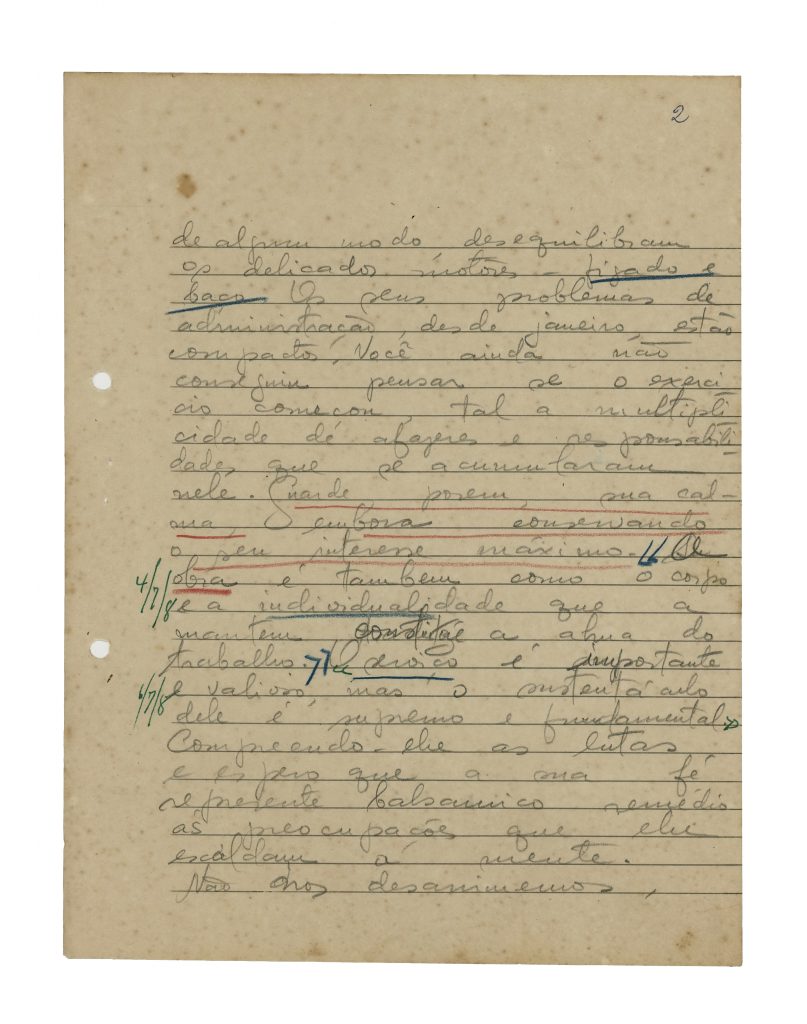 2
de algum modo desequilibram
os delicados motores - fígado e
baço. Os seus problemas de
administração, desde janeiro, estão
compactos. Você ainda não
conseguiu pensar se o exercí
cio começou, tal a multipli
cidade de afazeres e responsabili
dades que se acumularam
nele. Guarde porem, sua cal-
ma, embora conservando
o seu interesse máximo. "A
4/7/8 obra é tambem como o corpo
e a individualidade que a
mantem constitue a alma do
trabalho. >> O serviço é importante
6/7/8 e valioso, mas o sustentáculo
dele é supremo e fundamental.»
Compreendo-lhe as lutas
e espero que a sua fé
represente balsamico remédio
ás preocupações que lhe
escaldam a mente.
Não nos desanimemos,